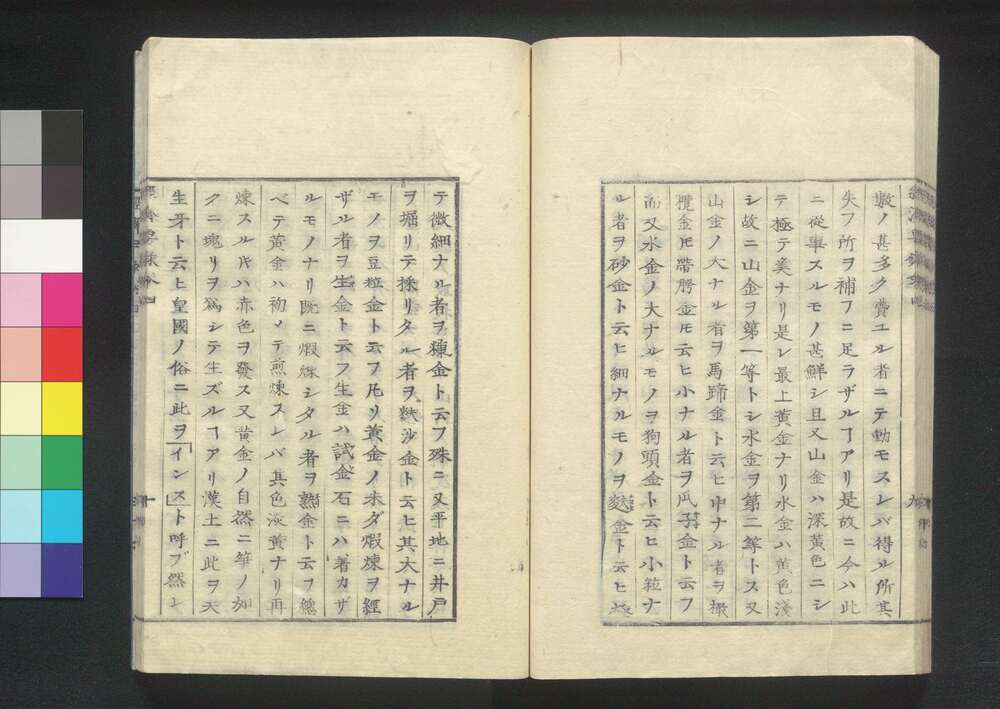 數ノ甚多ク費ユル者ニテ動モスレバ得ル所其
失フ所ヲ補フニ足ラザルヿアリ是故ニ今ハ此
ニ從事スルモノ甚鮮シ且又山金ハ深黄色ニシ
テ極テ美ナリ是レ最上黄金ナリ水金ハ黄色淺
シ故ニ山金ヲ第一等トシ水金ヲ第二等トス又
山金ノ大ナル者ヲ馬蹄金ト云ヒ中ナル者ヲ橄
欖金𪜈帶胯金𪜈云ヒ小ナル者ヲ瓜子金ト云フ
而又水金ノ大ナルモノヲ狗頭金ト云ヒ小粒ナ
ル者ヲ砂金ト云ヒ細ナルモノヲ麩金ト云ヒ
テ微細ナル者ヲ糠金ト云フ殊ニ又平地ニ井戸
ヲ堀リテ採リタル者ヲ麩沙金ト云ヒ其大ナル
モノヲ豆粒金ト云フ凡リ黄金ノ未ダ煆煉ヲ經
ザル者ヲ生金ト云フ生金ハ試金石ニハ着カザ
ルモノナリ既ニ煆煉シタル者ヲ熟金ト云フ總
ベテ黄金ハ初メテ煎煉スレバ其色淡黄ナリ再
煉スル𪜈ハ赤色ヲ發ス又黄金ノ自然ニ笋ノ如
クニ塊リヲ爲シテ生ズルヿアリ漢土ニ此ヲ天
生牙ト云ヒ皇國ノ俗ニ此ヲ「インス」ト呼ブ然レ